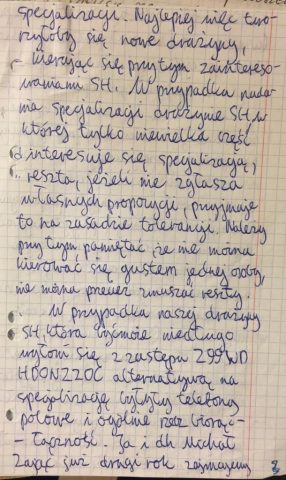 specjalizacji. Najlepiej więc two-
rzyłoby się nowe drużyny,
kierując się przytym zaintereso-
waniami SH. W przypadku nada-
nia specjalizacji drużynie SH, w
której tylko niewielka część
interesuje się specjalizacją,
reszta, jeżeli nie zgłasza
własnych propozycji, przyjmuje
to na zasadzie tolerancji. Należy
przytym pamiętać, że nie można
kierować się gustem jednej osoby,
nie można przecież zmuszać reszty.
W przypadku naszej drużyny
SH, która być może niedługo
wyłoni się z zastępu Z99WD
alternatywą na
specjalizację byłyby telefony
polowe i ogólnie rzecz biorąc -
- łączność. Ja i dh Michał
Zając już drugi rok zajmujemy